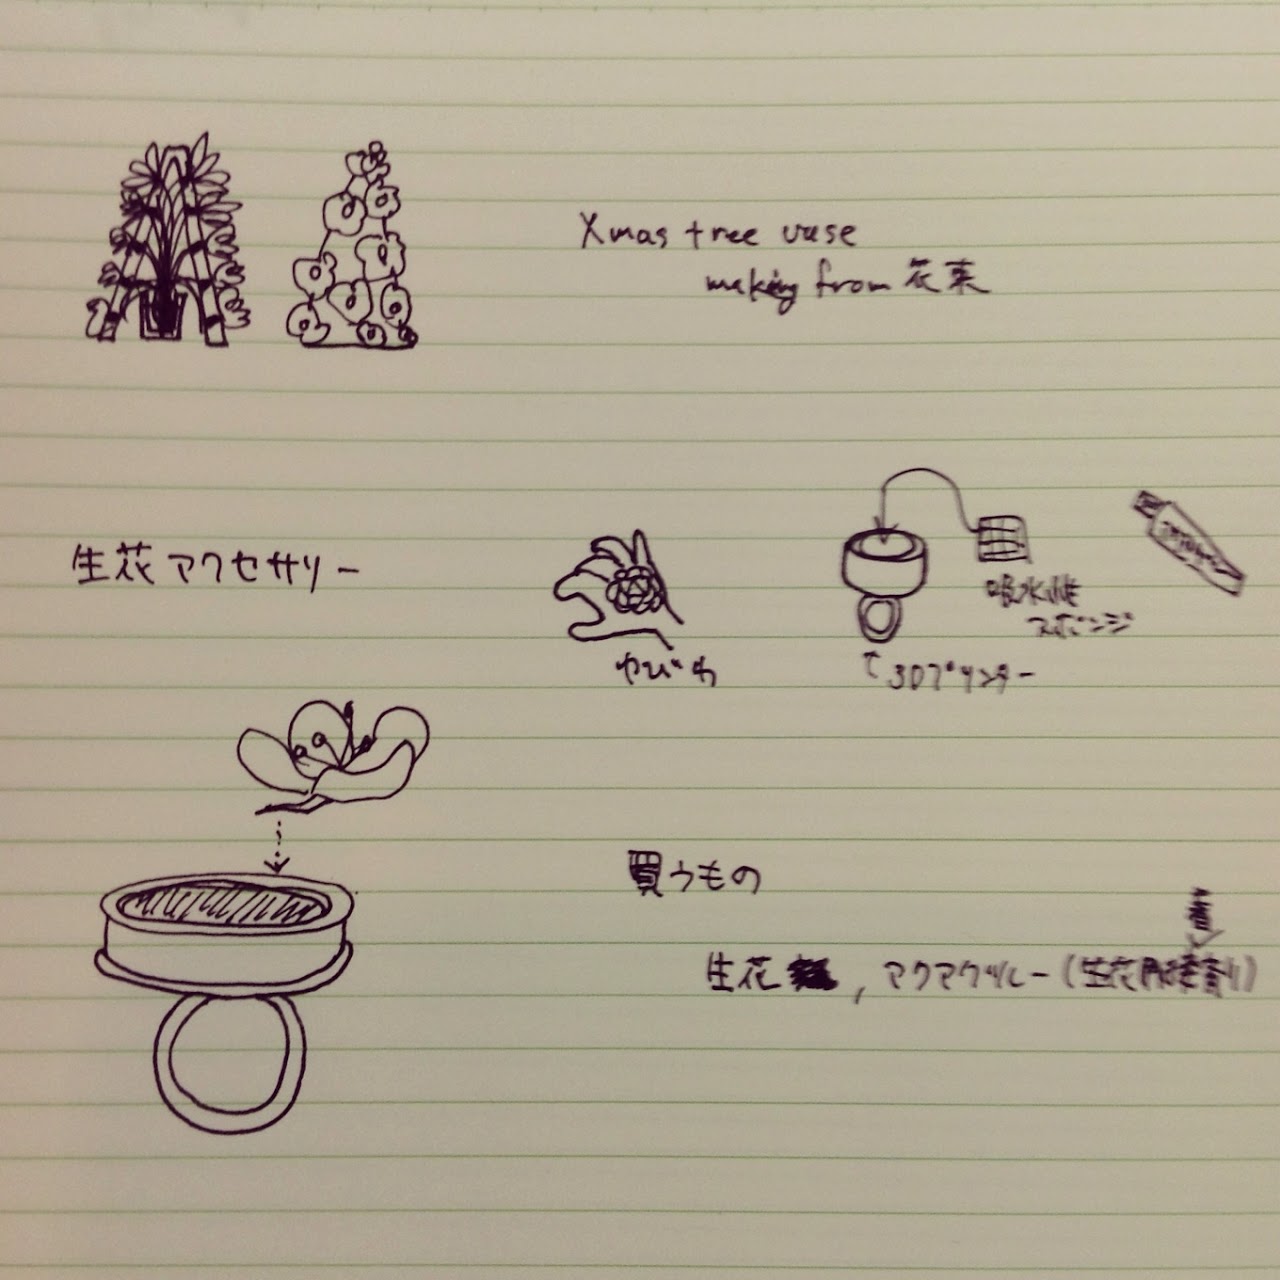 Xmas tree vase
making from 花束
生花アクセサリー
ゆびわ
吸水性
スポンジ
3Dプリンター
買うもの
着
生花 , アクアグルー(生花用接着剤)